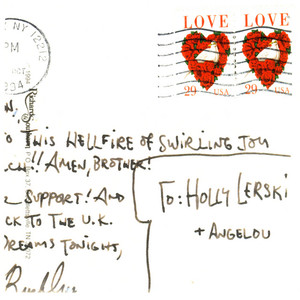 NY 12212
PM
OCT
LOVE LOVE
29 USA 29 USA
N,
O THIS HELLFIRE OF SWIRLING JOY
CH!! AMEN, BROTHER!
SUPPORT! AND
CK TO THE U.K.
DREAMS TONIGHT,
TO: HOLLY LERSKI
+ ANGELOU